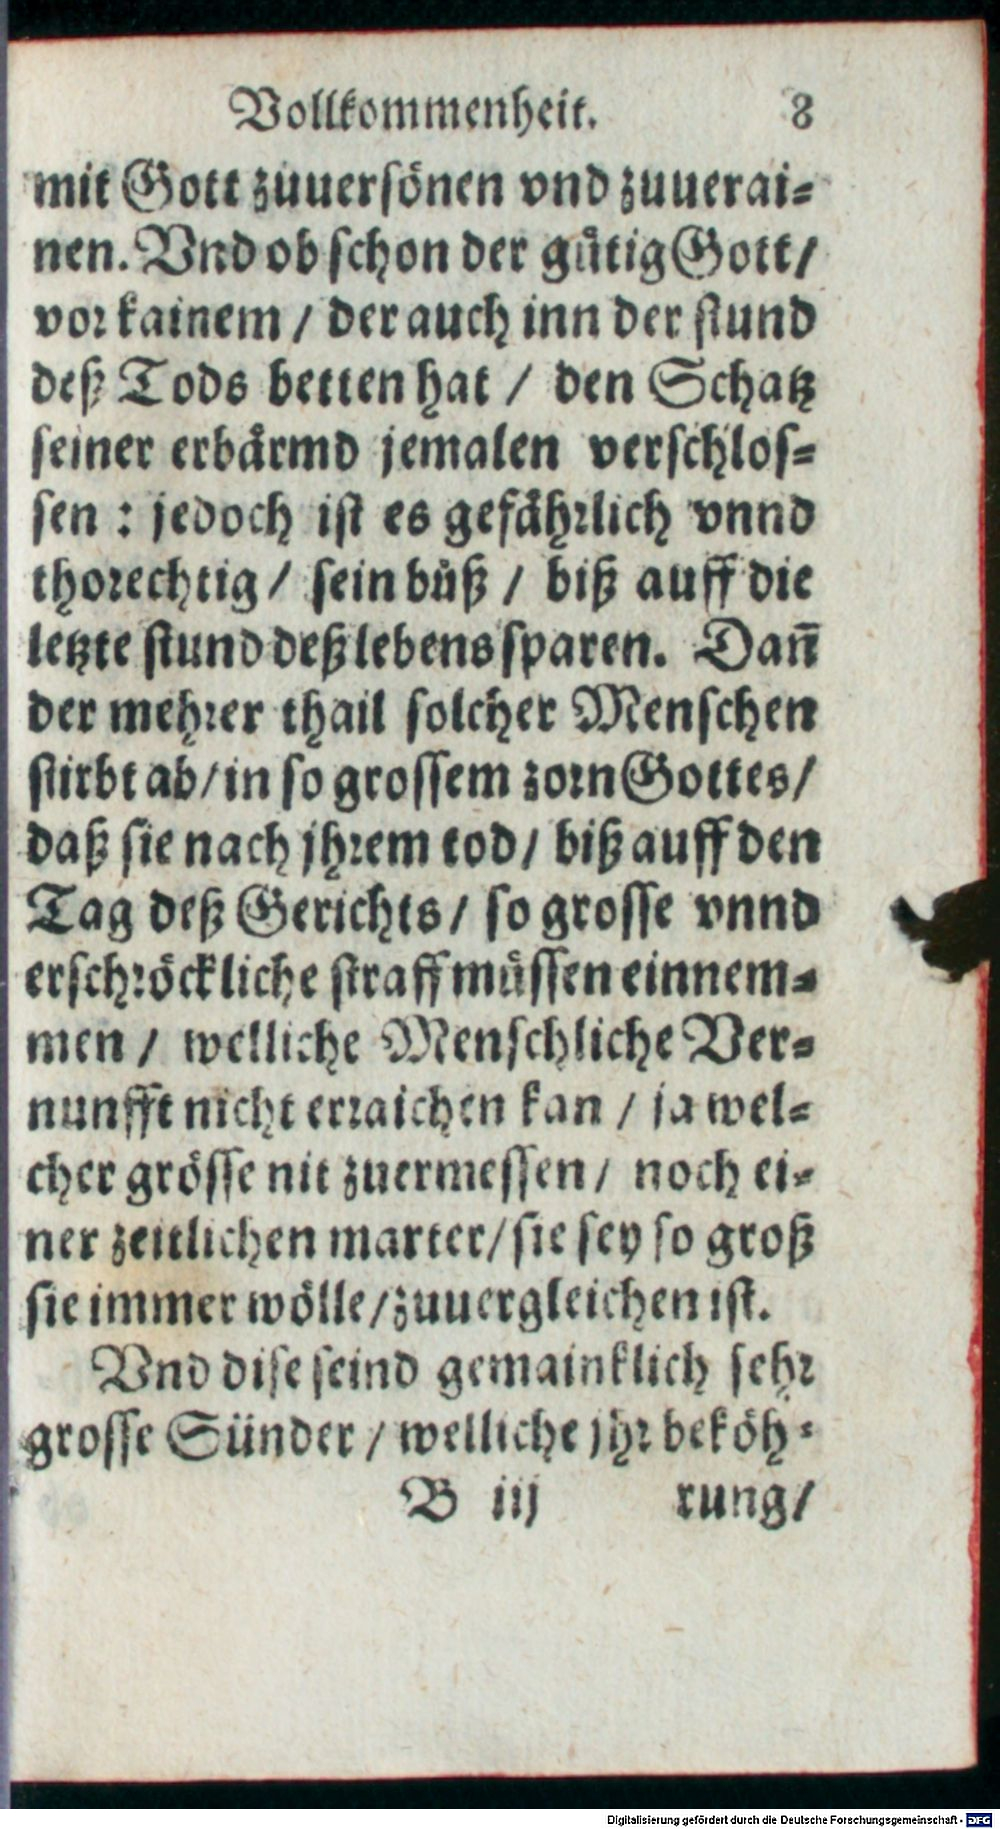 Vollkommenheit. 8
mit Gott zuuersönen vnd zuuerai-
nen. Vnd ob schon der guͤtig Gott/
vor kainem / der auch inn der stund
deß Tods betten hat / den Schatz
seiner erbaͤrmd jemalen verschlos-
sen : jedoch ist es gefaͤhrlich vnnd
thorechtig / sein buͤß / biß auff die
letzte stund deß lebens sparen. Dañ
der mehrer thail solcher Menschen
stirbt ab/in so grossem zorn Gottes/
daß sie nach jhrem tod/ biß auff den
Tag deß Gerichts/ so grosse vnnd
erschröckliche straff muͤssen einnem-
men / welliche Menschliche Ver-
nunfft nicht erraichen kan / ja wel-
cher grösse nit zuermessen/ noch ei-
ner zeitlichen marter/sie sey so groß
sie immer wölle/zuuergleichen ist.
Vnd dise seind gemainklich sehr
grosse Sünder / welliche jhr beköh-
B iij rung/
Digitalisierung gefördert durch die Deutsche Forschungsgemeinschaft - DFG